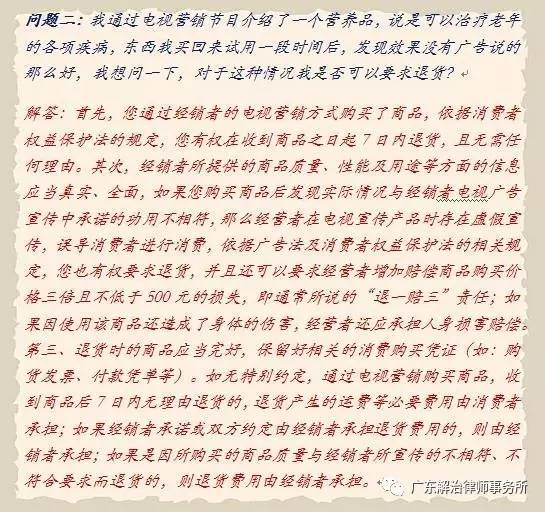 问题二：我通过电视营销节目介绍了一个营养品，说是可以治疗老年
的各项疾病，东西我买回来试用一段时间后，发现效果没有广告说的
那么好，我想问一下，对于这种情况我是否可以要求退货？
解答：首先，您通过经销者的电视营销方式购买了商品，依据消费者
权益保护法的规定，您有权在收到商品之日起7日内退货，且无需任
何理由。其次，经销者所提供的商品质量、性能及用途等方面的信息
应当真实、全面，如果您购买商品后发现实际情况与经销者电视广告
宣传中承诺的功用不相符，那么经营者在电视宣传产品时存在虚假宣
传，误导消费者进行消费，依据广告法及消费者权益保护法的相关规
定，您也有权要求退货，并且还可以要求经营者增加赔偿商品购买价
格三倍且不低于500元的损失，即通常所说的“退一赔三”责任；如
果因使用该商品还造成了身体的伤害，经营者还应承担人身损害赔偿。
第三、退货时的商品应当完好，保留好相关的消费购买凭证（如：购
货发票、付款凭单等）。如无特别约定，通过电视营销购买商品，收
到商品后7日内无理由退货的，退货产生的运费等必要费用由消费者
承担；如果经销者承诺或双方约定由经销者承担退货费用的，则由经
销者承担；如果是因所购买的商品质量与经销者所宣传的不相符、不
符合要求而退货的，则退货费用由经销者承担。
广东解治律师事务所